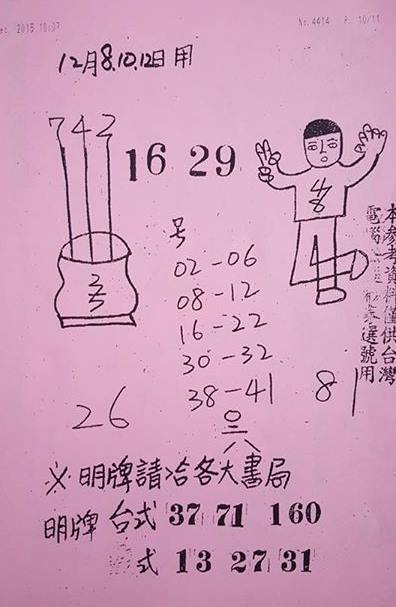 ec. 2015 10:07
No. 4414 P. 10/11
12月8.10.12日用
742
16 29
号
02-06
08-12
16-22
30-32
38-41
26
81
本參考資料僅供台灣
電腦
選號用
※明牌請洽各大書局
明牌 台式 37 71 160
式 13 27 31